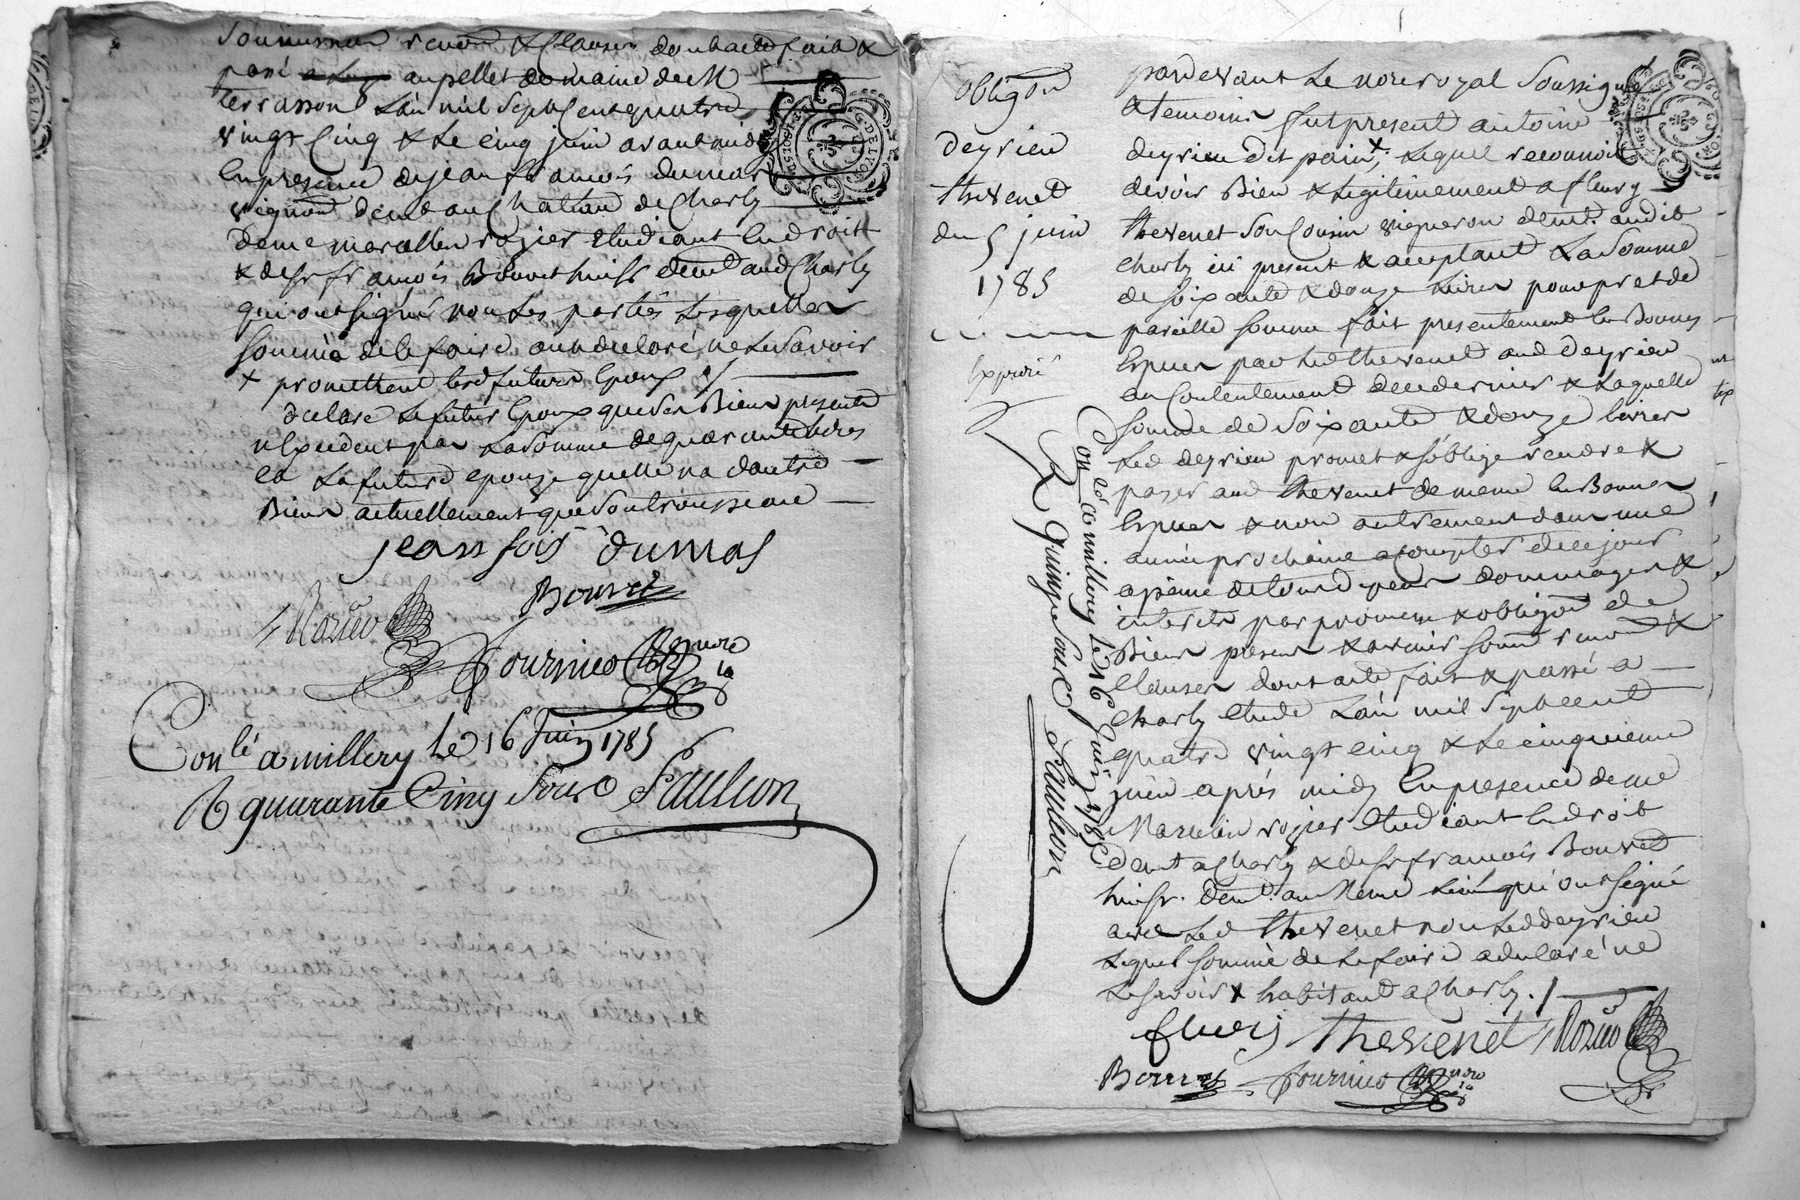 soumission renon & clauses dont acte fait &
passé aupellet domaine de M
terrasson L'an mil Sept Cent quatre
vingt Cinq & Le cinq juin avant midy
En presence de jean francois dumas
vigneron demt au Chateau de Charly
de me marcellin rozier Etudiant En droit
& de sr francois Bouvet huissr demt aud Charly
qui ont signé non Les parties Lesquelles
sommée de le faire ont declaré ne Le savoir
x promettent lesd futurs Epoux
declare Le futur Epoux que ses Biens presents
n'Excedent pas La somme de quarante livres
Et La future epouze quelle na dautre
Biens actuellement que son trousseau
jean fois dumas
Bouvet
Rozier
Fournier nore
Conlé a millery le 16 Juin 1785
R quarante Cinq sous Faulcon
G. DE LYON
obligaon
deyrieu
thevenet
du 5 juin
1785
Expedié
Conlé a millery le 16 Juin 1785
R quinze sous Faulcon
pardevant Le nore royal soussigné
& temoins fut present antoine
deyrieu dit pain x, Lequel reconnoit
devoir Bien & Legitimement a fleury
thevenet son Cousin vigneron demt. audit
Charly ici present & acceptant La somme
de soixante & douze Livres pour pret de
pareille somme fait presentement En Bonnes
Especes par Led thevenet aud Deyrieu
au Contentement de ce dernier & Laquelle
somme de soixante & douze livres
Led deyrieu promet & s'oblige rendre &
payer aud thevenet de meme En Bonnes
Especes & non autrement dans une
année prochaine a Compter de ce jour
a peine de tous depens dommages &
interets par promesse & obligaon de
Biens presens & avenir soumon renon &
Clauses dont acte fait & passé a
Charly Etude L'an mil Sept cent
quatre vingt cinq & Le cinquieme
juin après midy En presence de me
Marcellin rozier Etudiant En droit
demt a Charly & de sr francois Bouvet
huissr. demt. au meme Lieu qui ont signé
avec Led thevenet non Led deyrieu
Lequel sommé de Le faire a declaré ne
Le savoir x habitant a Charly.
fleury thevenet Rozier
Bouvet Fournier nore